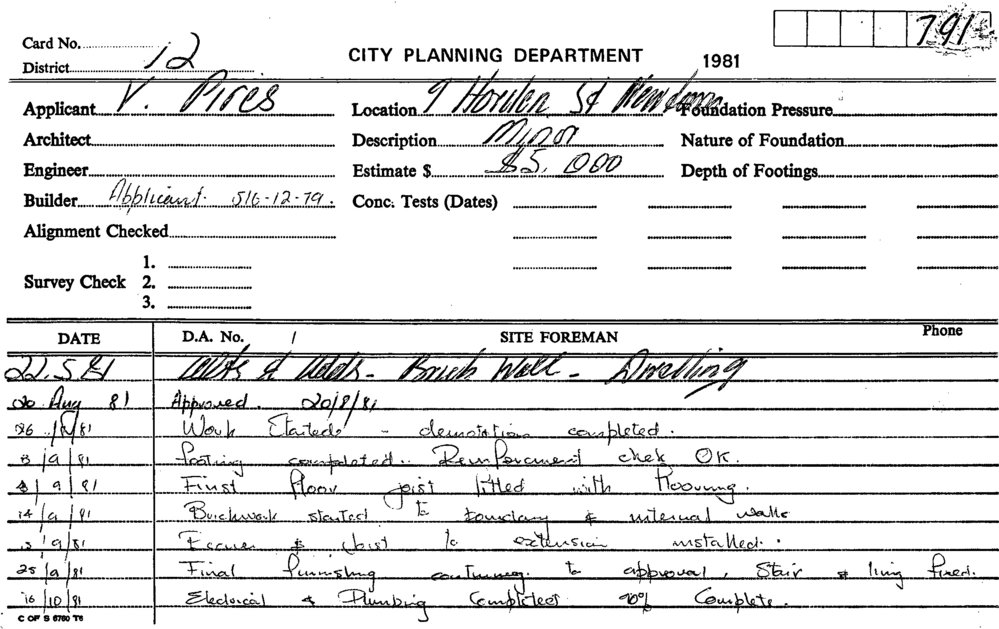 791
Card No.
District 12
CITY PLANNING DEPARTMENT 1981
Applicant V. Pires Location 9 Horden St Newtown Foundation Pressure
Architect Description Minor Nature of Foundation
Engineer Estimate $ $5,000 Depth of Footings
Builder Applicant. 516-12-79. Conc. Tests (Dates)
Alignment Checked
1.
Survey Check 2.
3.
DATE D.A. No. / SITE FOREMAN Phone
22.5.81 Alts & Adds - Brick Wall - Dwelling
20 Aug 81 Approved. 20/8/81
26/8/81 Work Started - demolition completed.
3/9/81 footing completed. Reinforcement chek OK.
8/9/81 First floor joist fitted with flooring.
14/9/81 Brickwork started to boundary & internal walls
9/81 & joist to extension installed.
25/9/81 Final furnishing continuing to approval, Stair & fixed.
16/10/81 Electrical & Plumbing Completed 90% Complete.
C OF S 6760 T6